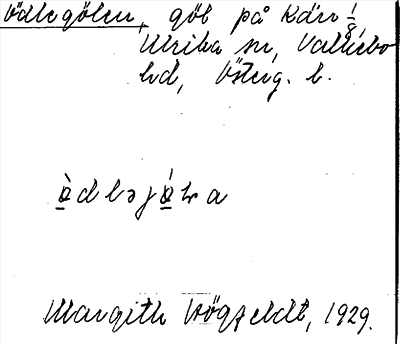 Ödlegölen, göl på Kärr 1/8
Ulrika sn, Valkebo
hd, Österg. l.
ö̀dləjö́lɷa
Margith Högfeldt, 1929.